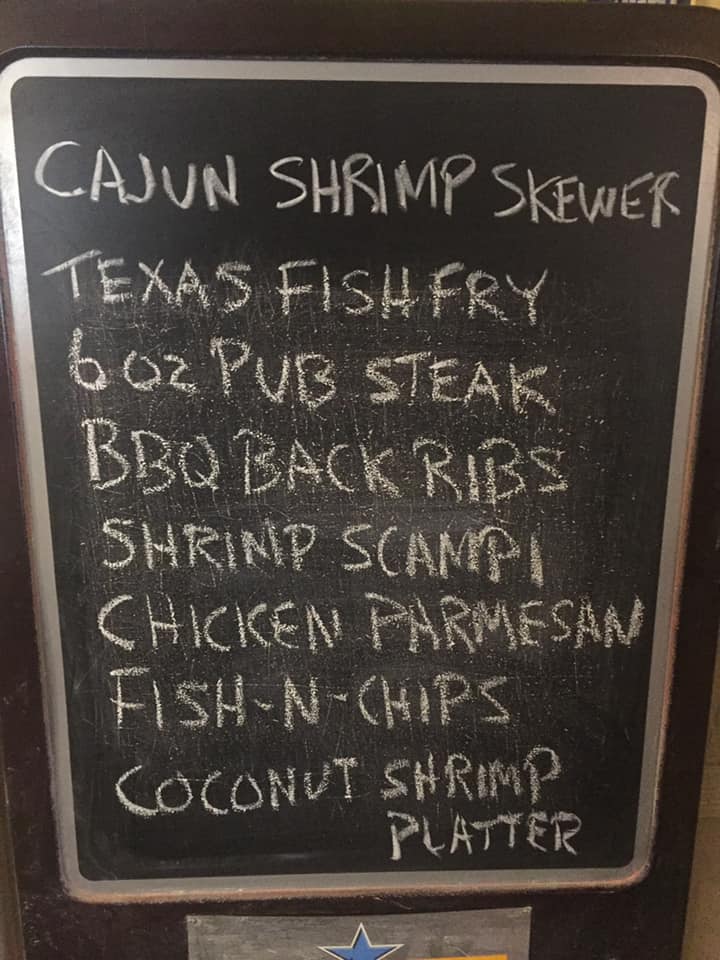 CAJUN SHRIMP SKEWER
TEXAS FISH FRY
6 oz PUB STEAK
BBQ BACK RIBS
SHRIMP SCAMPI
CHICKEN PARMESAN
FISH-N-CHIPS
COCONUT SHRIMP
PLATTER